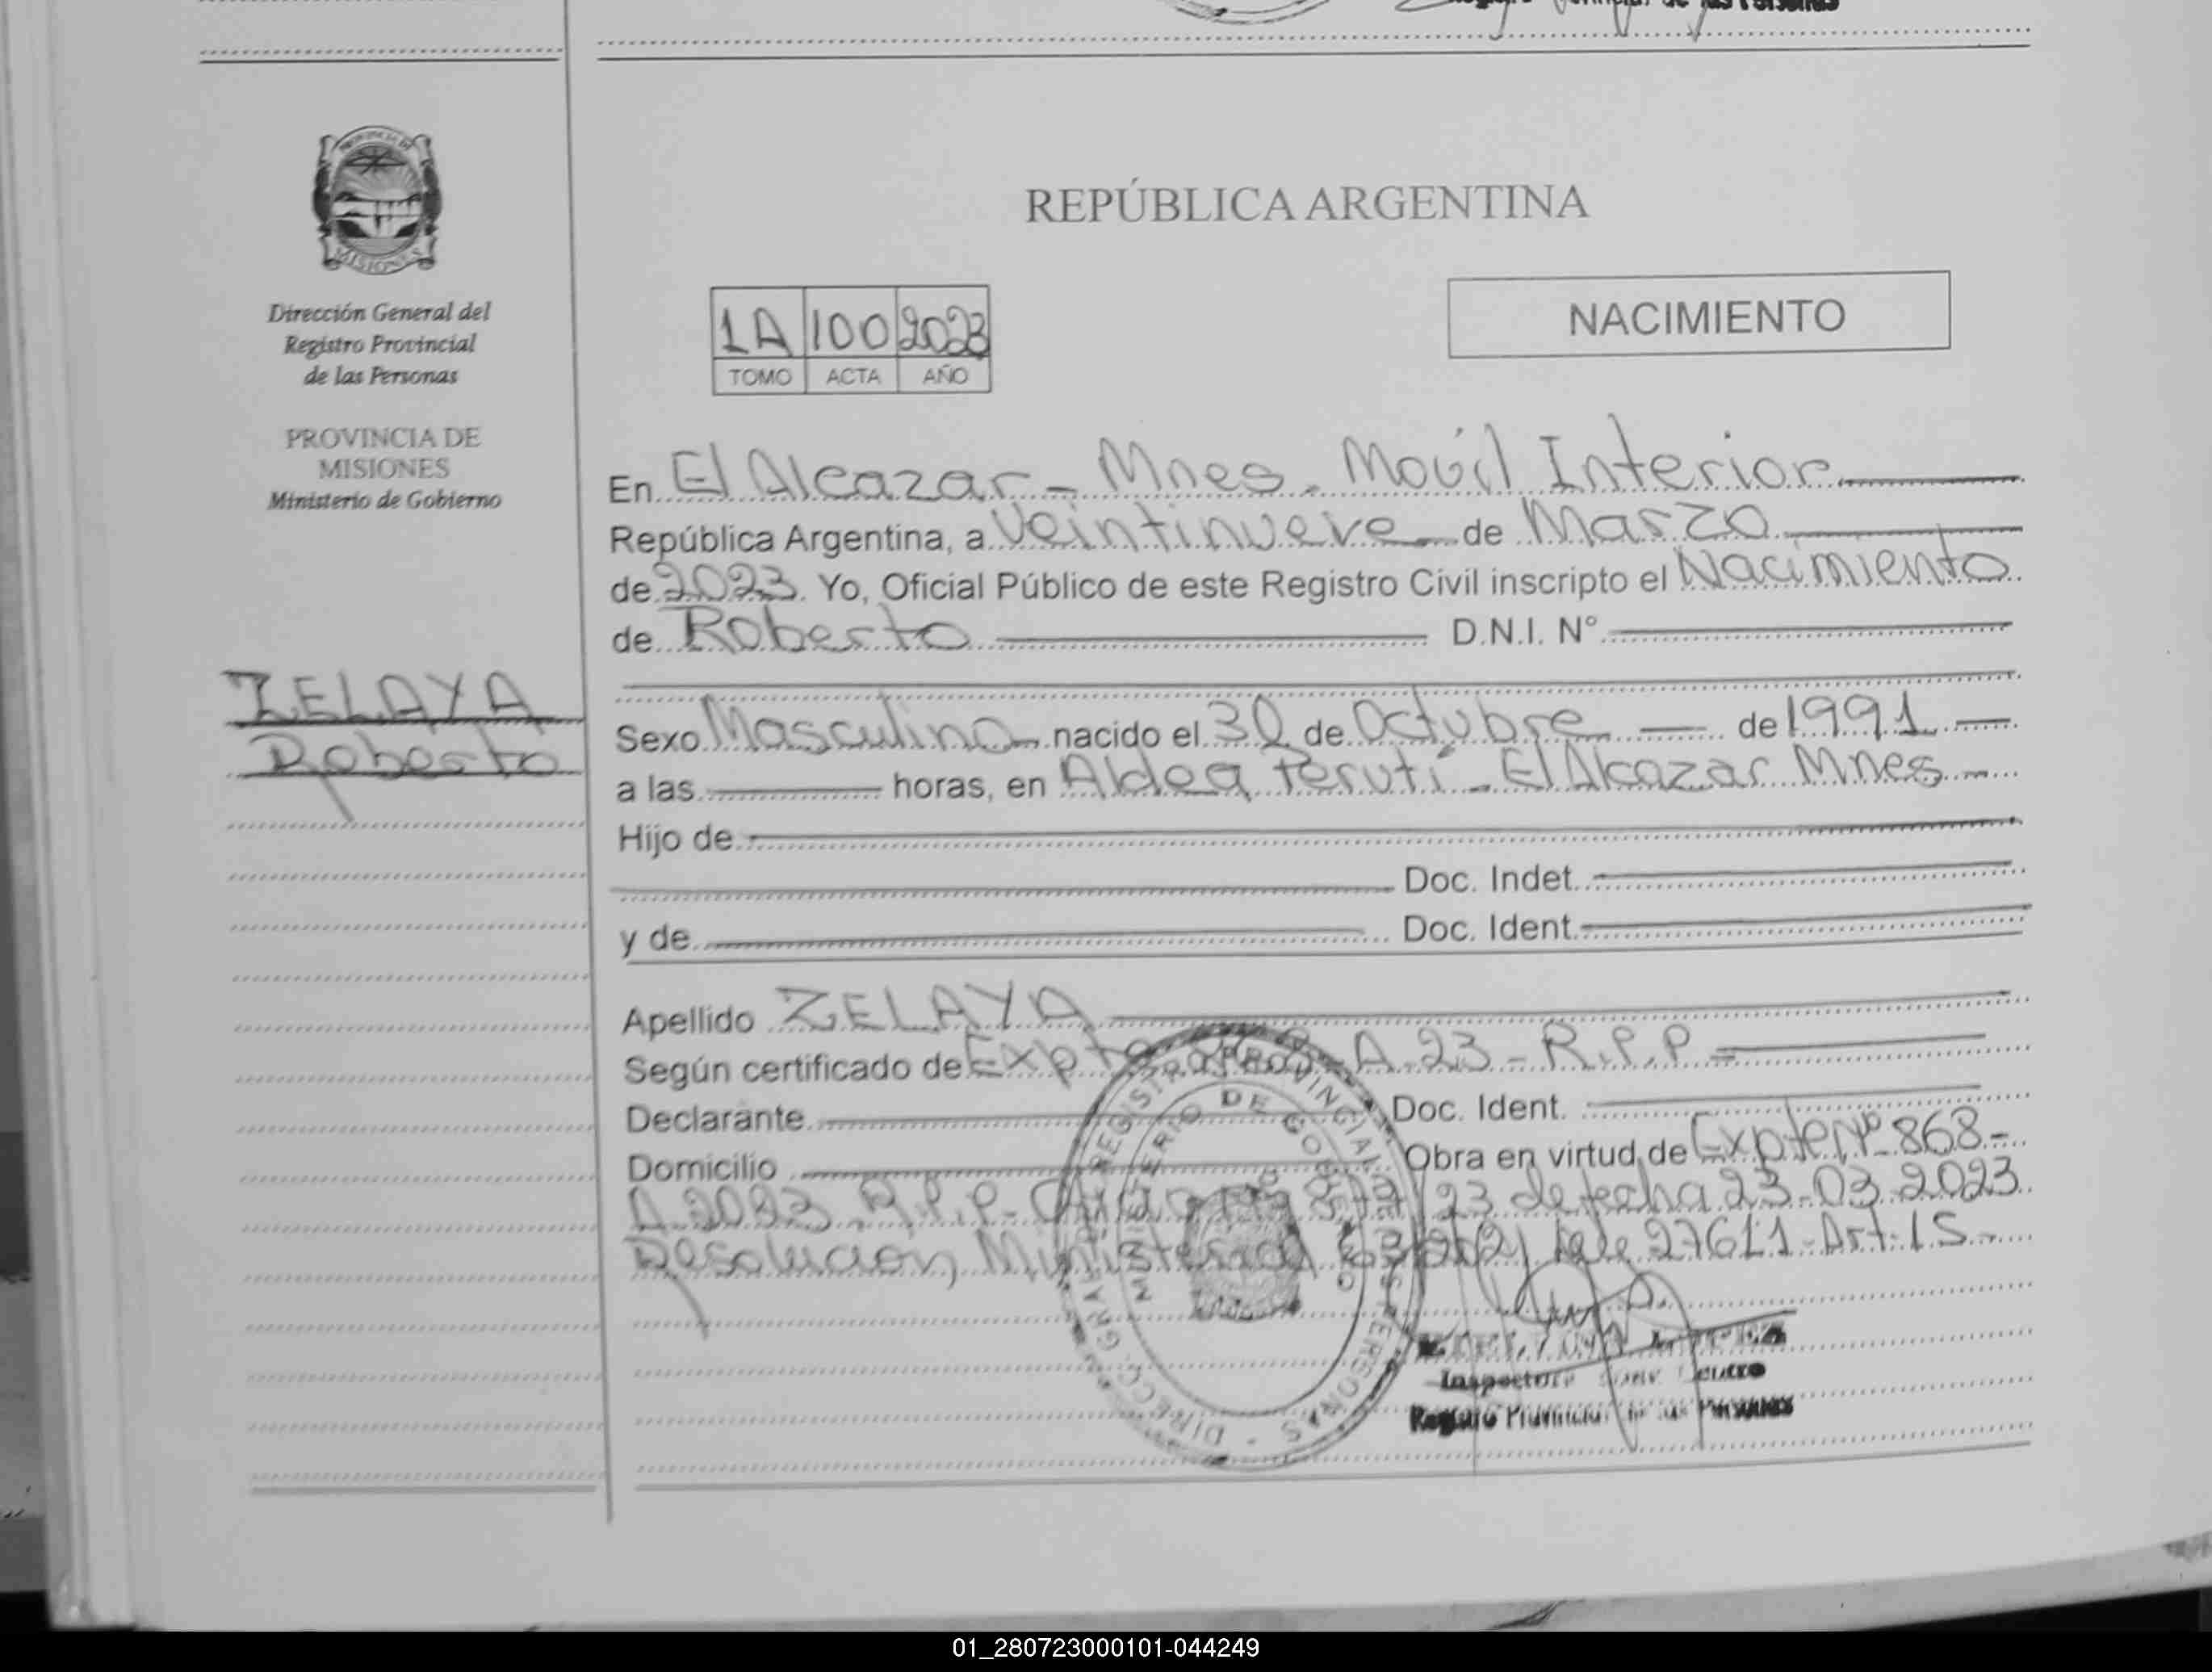 PROVINCIA DE
MISIONES
Dirección General del
Registro Provincial
de las Personas
PROVINCIA DE
MISIONES
Ministerio de Gobierno
ZELAYA
Roberto
REPÚBLICA ARGENTINA
1A 100 2023
TOMO ACTA AÑO
NACIMIENTO
En El Alcazar - Mnes. Movil Interior
República Argentina, a Veintinueve de Marzo
de 2023. Yo, Oficial Público de este Registro Civil inscripto el Nacimiento
de Roberto D.N.I. N°
Sexo Masculino nacido el 30 de Octubre de 1991
a las horas, en Aldea Peruti - El Alcazar Mnes
Hijo de
Doc. Indet.
y de Doc. Ident.
Apellido ZELAYA
Según certificado de Expte A.23 - R.P.P
Declarante Doc. Ident.
Domicilio Obra en virtud de Expte Nº 868-
A.2023.R.P.P- 23 de fecha 23.03.2023
Resolucion Ministerial 27611-Art-15.-
Registro Provincial de las Personas
DIRECC. GRAL. DEL REGISTRO PROVINCIAL DE LAS PERSONAS
MINISTERIO DE GOBIERNO
01_280723000101-044249